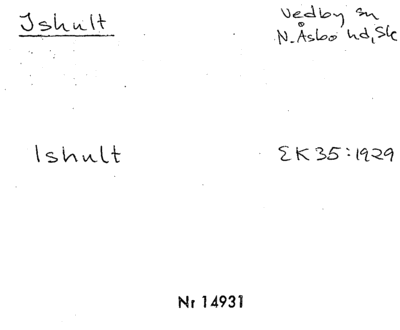 Ishult
Vedby sn
N. Åsbo hd, Sk
Ishult
EK 35:1929
Nr 14931